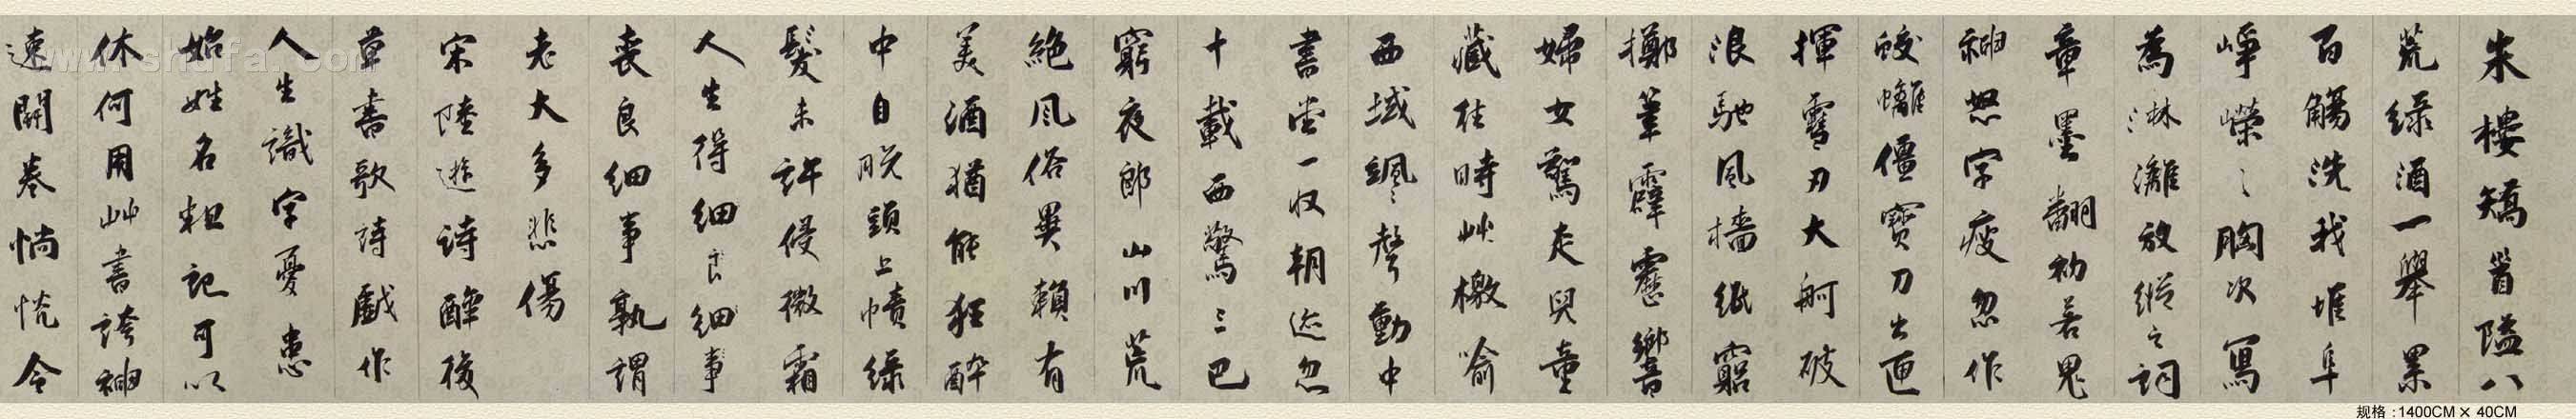 朱樓矯首隘八
荒綠酒一舉累
百觴洗我堆阜
崢嶸々胸次寫
為淋漓放縱之詞
章墨翻初若鬼
神怒字疲忽作
蛟螭僵寶刀出匣
揮雪刃大舸破
浪馳風檣紙窮
擲筆霹靂響
婦女驚走兒童
藏往時艸檄喻
西域颯々聲動中
書堂一收朝迹忽
十載西驚三巴
窮夜郎山川荒
絕風俗異賴有
美酒猶能狂醉
中自脫頭上幘綠
髮未許侵微霜
人生得細良細事
喪良細事孰謂
老大多悲傷
宋陸遊詩醉後
草書歌詩戲作
人生識字憂患
始姓名粗記可以
休何用艸書誇神
速開卷惝怳令
www.shufa.com
规格 :1400CM× 40CM